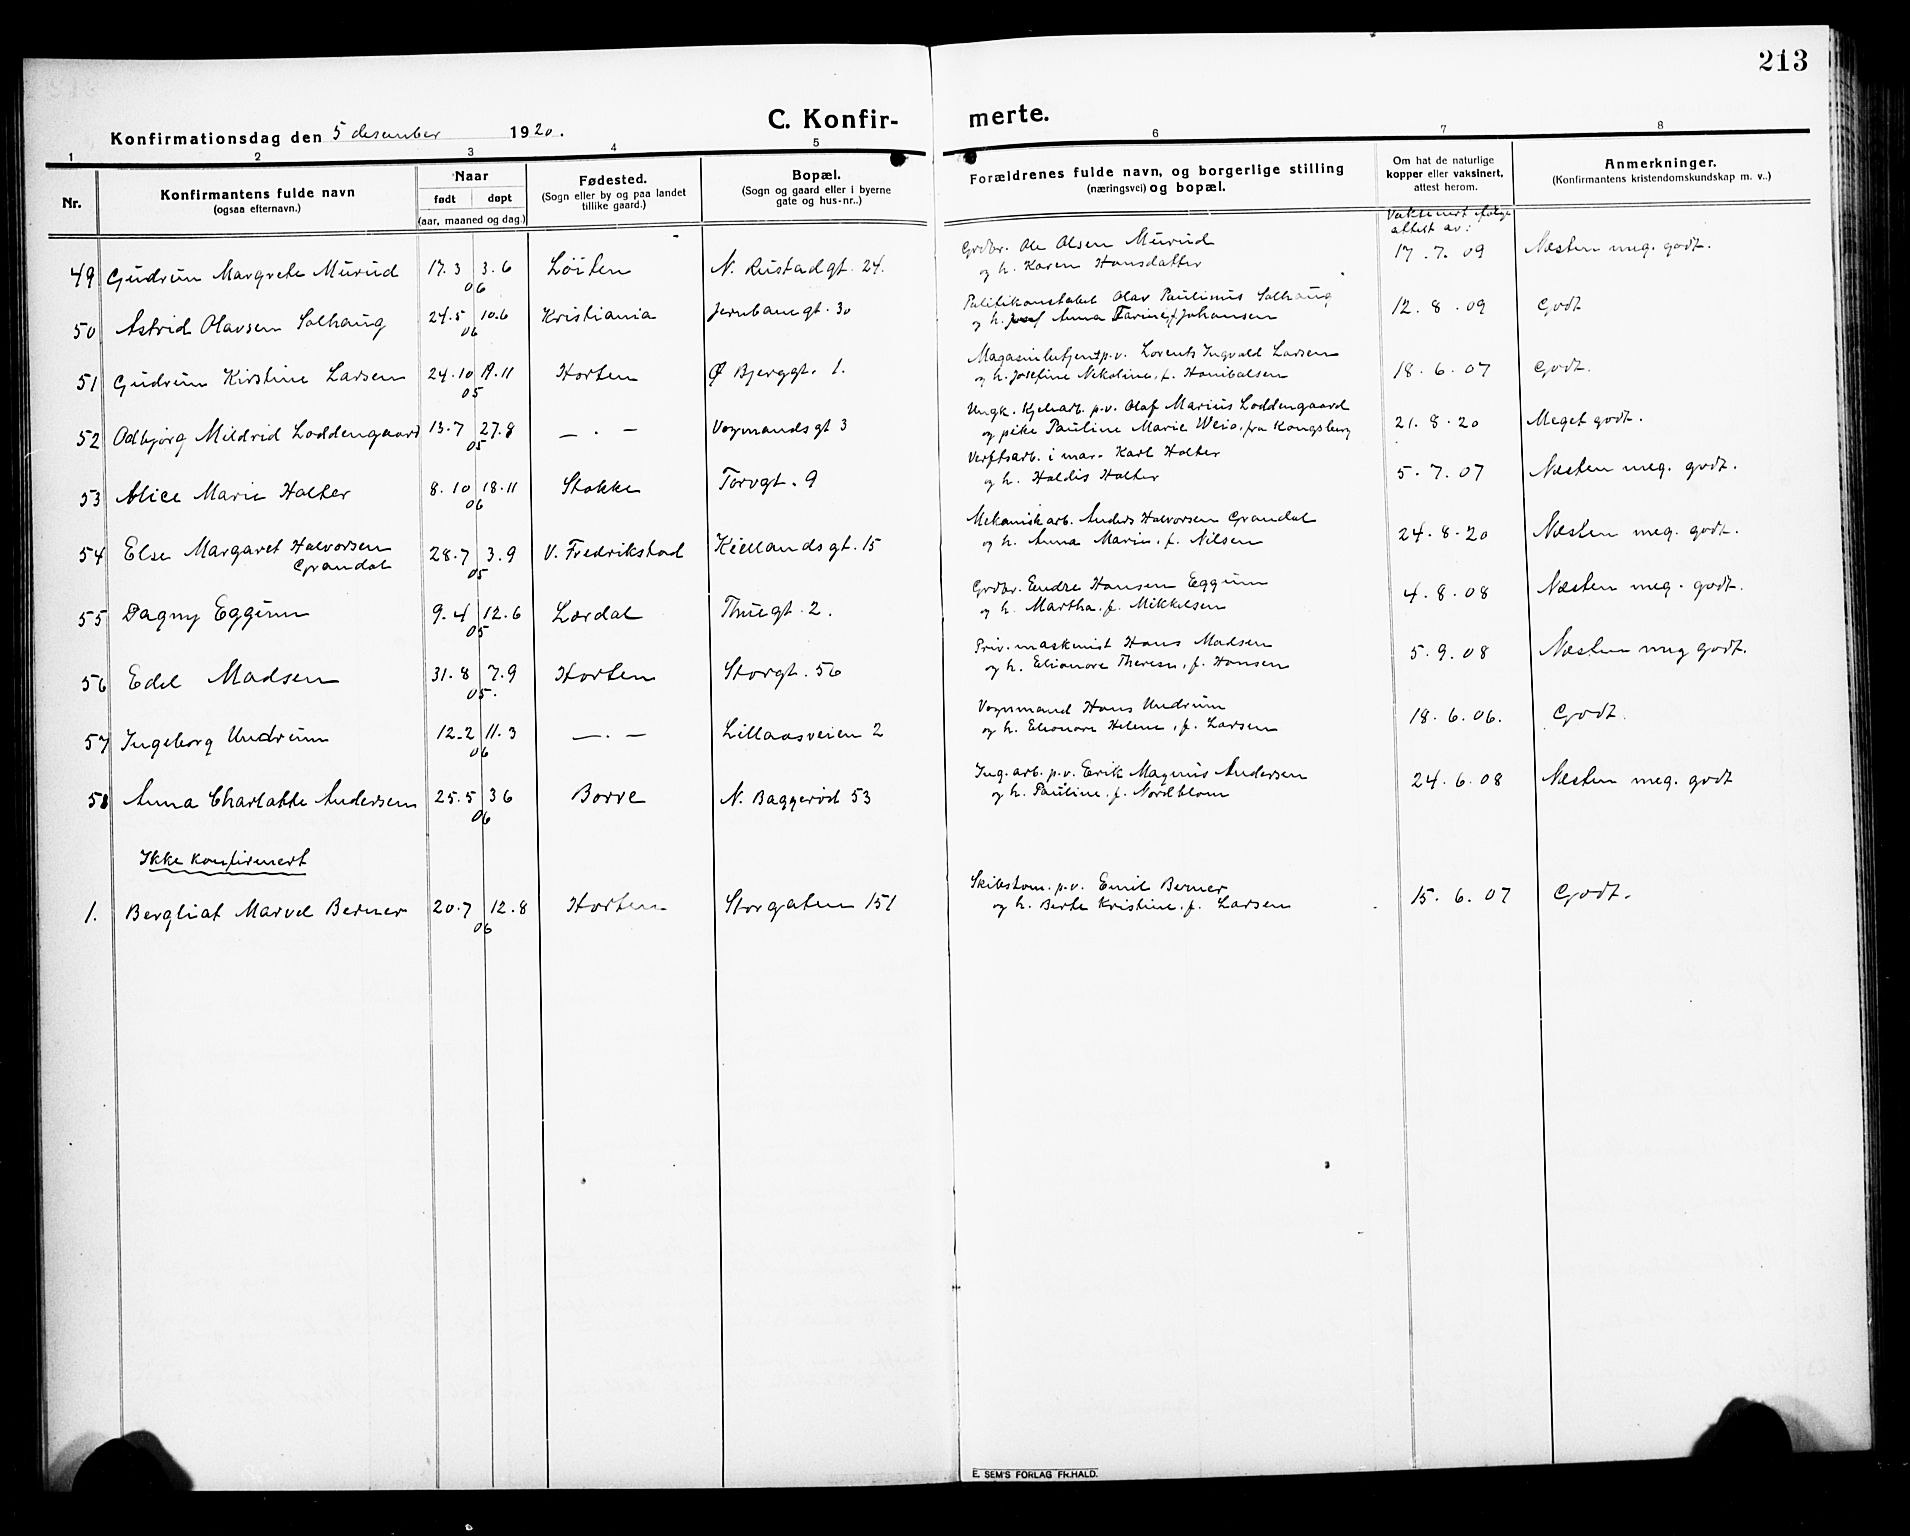 213
Konfirmationsdag den 5 desember 1920.
C. Konfirmerte.
1 2 3 4 5 6 7 8
Nr.
Konfirmantens fulde navn
(ogsaa efternavn.)
Naar
født døpt
(aar, maaned og dag.)
Fødested.
(Sogn eller by og paa landet
tillike gaard.)
Bopæl.
(Sogn og gaard eller i byerne
gate og hus-nr..)
Forældrenes fulde navn, og borgerlige stilling
(næringsvei) og bopæl.
Om hat de naturlige
kopper eller vaksinert,
attest herom.
Anmerkninger.
(Konfirmantens kristendomskundskap m. v..)
Vaksinert ifølge
attest av:
49 Gudrun Margrete Murud 17.3 3.6 06 Löiten N. Rustadgt. 24. Grdbr. Ole Olsen Murud
og h. Karen Hansdatter 17.7.09 Næsten meg. godt.
50 Astrid Olavsen Solhaug 24.5 10.6 06 Kristiania Jernbanegt. 30 Politikonstabel Olav Paulinus Solhaug
og h. Anna Tarine f. Johansen 12.8.09 Godt
51 Gudrun Kirstine Larsen 24.10 19.11 05 Horten Ø Bjerggt. 1. Magasinbetjent p.v. Lorents Ingvald Larsen
og h. Josefine Nekoline, f. Hanibalsen 18.6.07 Godt.
52 Odbjørg Mildrid Loddengaard 13.7 27.8 05 — . — Vognmandsgt 3 Ungk. Kjelarb. p.v. Olaf Marius Loddengaard
og pike Pauline Marie Weio, fra Kongsberg 21.8.20 Meget godt.
53 Alice Marie Holter 8.10 18.11 06 Stokke Torvgt. 9 Verftsarb. i mar. Karl Holter
og h. Haldis Holter 5.7.07 Næsten meg. godt.
54 Else Margaret Halvorsen
Grandal 28.7 3.9 05 V. Fredrikstad Kiellandsgt. 15 Mekanisk arb. Anders Halvorsen Grandal
og h. Anna Marie, f. Nilsen 24.8.20 Næsten meg. godt.
55 Dagny Eggum 9.4 12.6 05 Lærdal Thuegt. 2. Grdbr. Endre Hansen Eggum
og h. Martha, f. Mikkelsen 4.8.08 Næsten meg. godt.
56 Edel Madsen 31.8 7.9 05. Horten Storgt. 56 Priv. maskinist Hans Madsen
og h. Elionore Therese, f. Hansen 5.9.08 Næsten meg godt.
57 Ingeborg Undrum 12.2 11.3 06 — . — Lillaasveien 2 Vognmand Hans Undrum
og h. Eleonore Helene, f. Larsen 18.6.06. Godt.
58 Anna Charlotte Andersen 25.5 3 6 06 Borre N. Baggerød 53 Ing. arb. p.v. Erik Magnus Andersen
og h. Pauline, f. Nordblom 24.6.08 Næsten meg. godt
Ikke konfirmert
1. Bergliot Marvel Berner 20.7 12.8 06 Horten Storgaten 151 Skibstøm. p.v. Emil Berner
og h. Berte Kristine, f. Larsen 15.6.07 Godt.
E. SEM'S FORLAG FR.HALD.